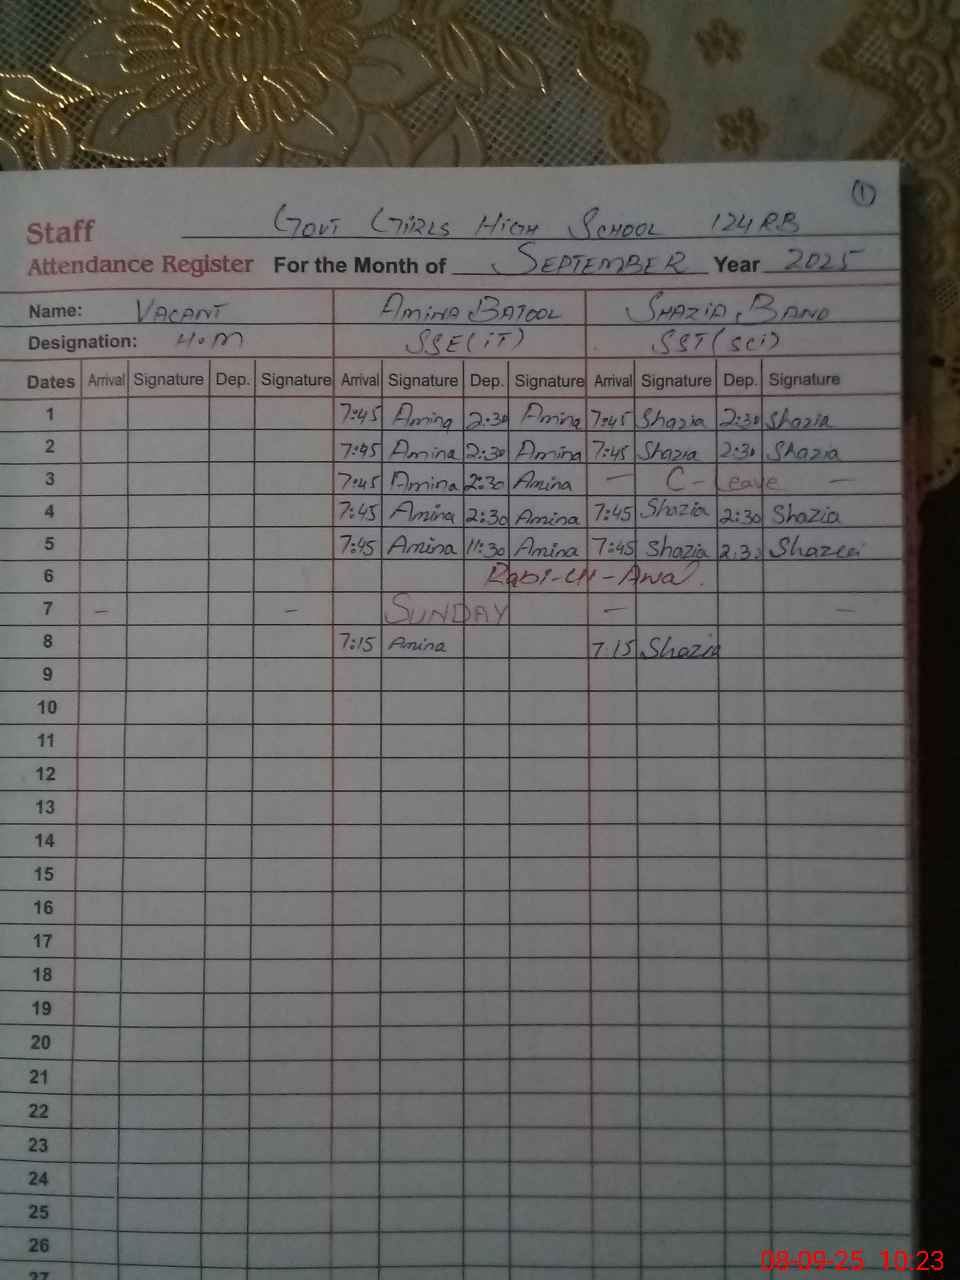 ①
Staff GOVT GIRLS HIGH SCHOOL 124 RB
Attendance Register For the Month of SEPTEMBER Year 2025
Name: VACANT AMINA BATOOL SHAZIA BANO
Designation: H.M SSE(IT) SST(Sci)
Dates Arrival Signature Dep. Signature Arrival Signature Dep. Signature Arrival Signature Dep. Signature
1 7:45 Amina 2:30 Amina 7:45 Shazia 2:30 Shazia
2 7:45 Amina 2:30 Amina 7:45 Shazia 2:30 Shazia
3 7:45 Amina 2:30 Amina — C-Leave —
4 7:45 Amina 2:30 Amina 7:45 Shazia 2:30 Shazia
5 7:45 Amina 11:30 Amina 7:45 Shazia 2:30 Shazia
6 Rabi-ul-Awal.
7 — — SUNDAY — —
8 7:15 Amina 7:15 Shazia
9
10
11
12
13
14
15
16
17
18
19
20
21
22
23
24
25
26
27
08-09-25 10:23